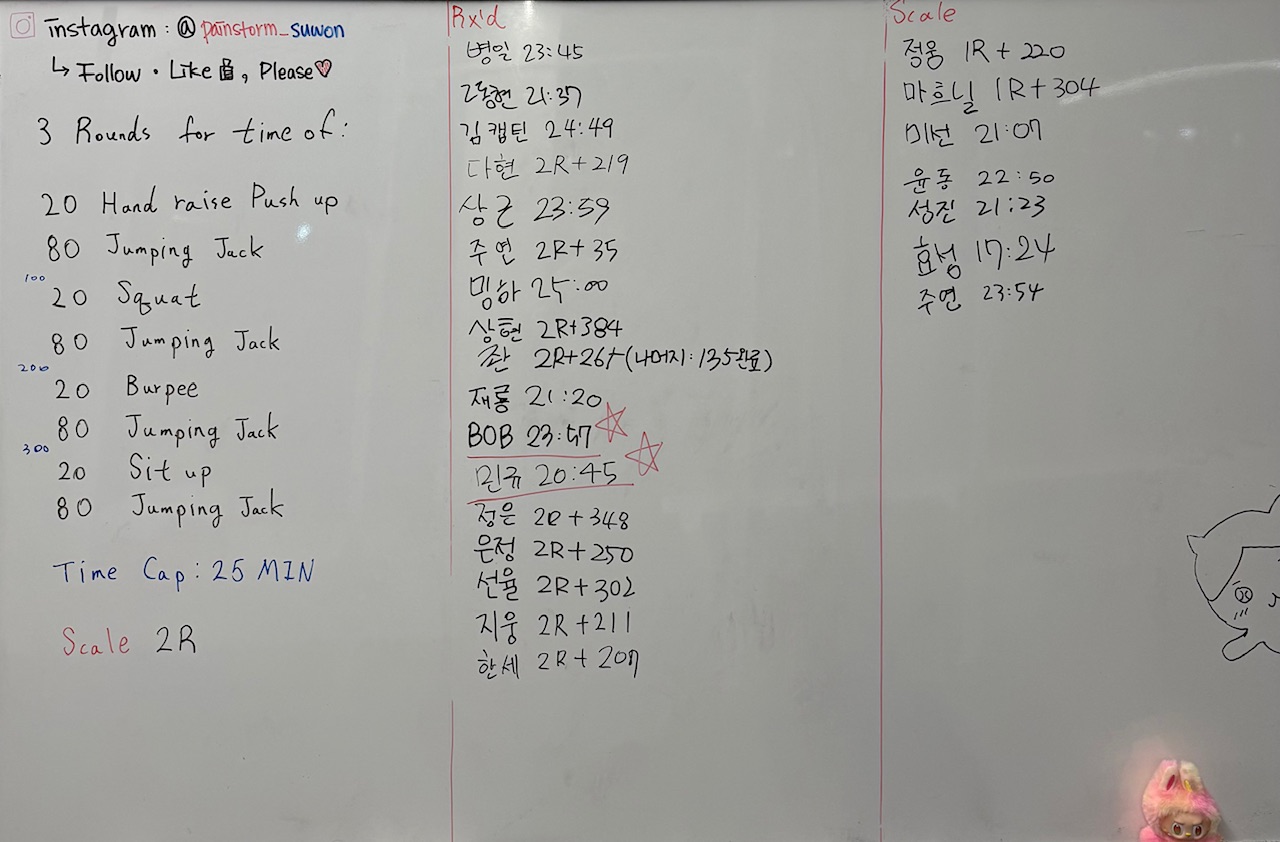 instagram : @painstorm_suwon
↳ Follow · Like, Please♡
3 Rounds for time of :
20 Hand raise Push up
80 Jumping Jack
100
20 Squat
80 Jumping Jack
200
20 Burpee
80 Jumping Jack
300
20 Sit up
80 Jumping Jack
Time Cap : 25 MIN
Scale 2R
Rx'd
병일 23:45
고동현 21:37
김캡틴 24:49
다현 2R+219
상근 23:59
주연 2R+35
밍하 25:00
상현 2R+384
2R+267 (나머지: 135완료)
재룡 21:20
BOB 23:47 ☆
민규 20:45 ☆
정은 2R+348
은정 2R+250
선율 2R+302
지웅 2R+211
한세 2R+207
Scale
정웅 1R+220
마흐닐 1R+304
미선 21:07
윤동 22:50
성진 21:23
효성 17:24
주연 23:54